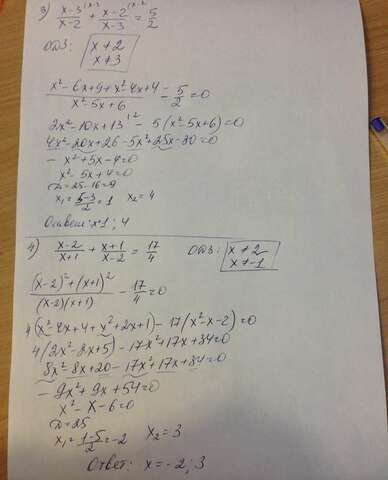 3) (x-3)^(x-3)/(x-2) + (x-2)^(x-2)/(x-3) = 5/2
ОДЗ: x ≠ 2
x ≠ 3
(x²-6x+9+x²-4x+4)/(x²-5x+6) - 5/2 = 0
2x²-10x+13 |² - 5(x²-5x+6)=0
4x²-20x+26-5x²+25x-30=0
-x²+5x-4=0
x²-5x+4=0
D=25-16=9
x₁=(5-3)/2=1 x₂=4
Ответ: x=1; 4
4) (x-2)/(x+1) + (x+1)/(x-2) = 17/4 ОДЗ: x ≠ 2
x ≠ -1
((x-2)²+(x+1)²)/((x-2)(x+1)) - 17/4 = 0
4(x²-4x+4+x²+2x+1)-17(x²-x-2)=0
4(2x²-2x+5)-17x²+17x+34=0
8x²-8x+20-17x²+17x+34=0
-9x²+9x+54=0
x²-x-6=0
D=25
x₁=(1-5)/2=-2 x₂=3
Ответ: x=-2; 3